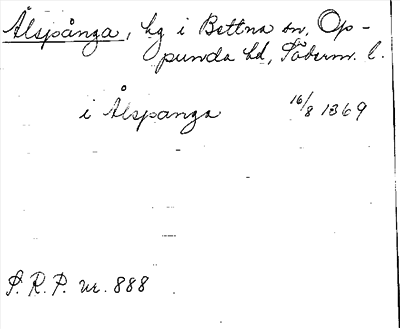 Ålspånga, hg i Bettna sn, Op-
punda hd, Söderm. l.
i Ålspanga 16/8 1369
S. R. P. nr. 888